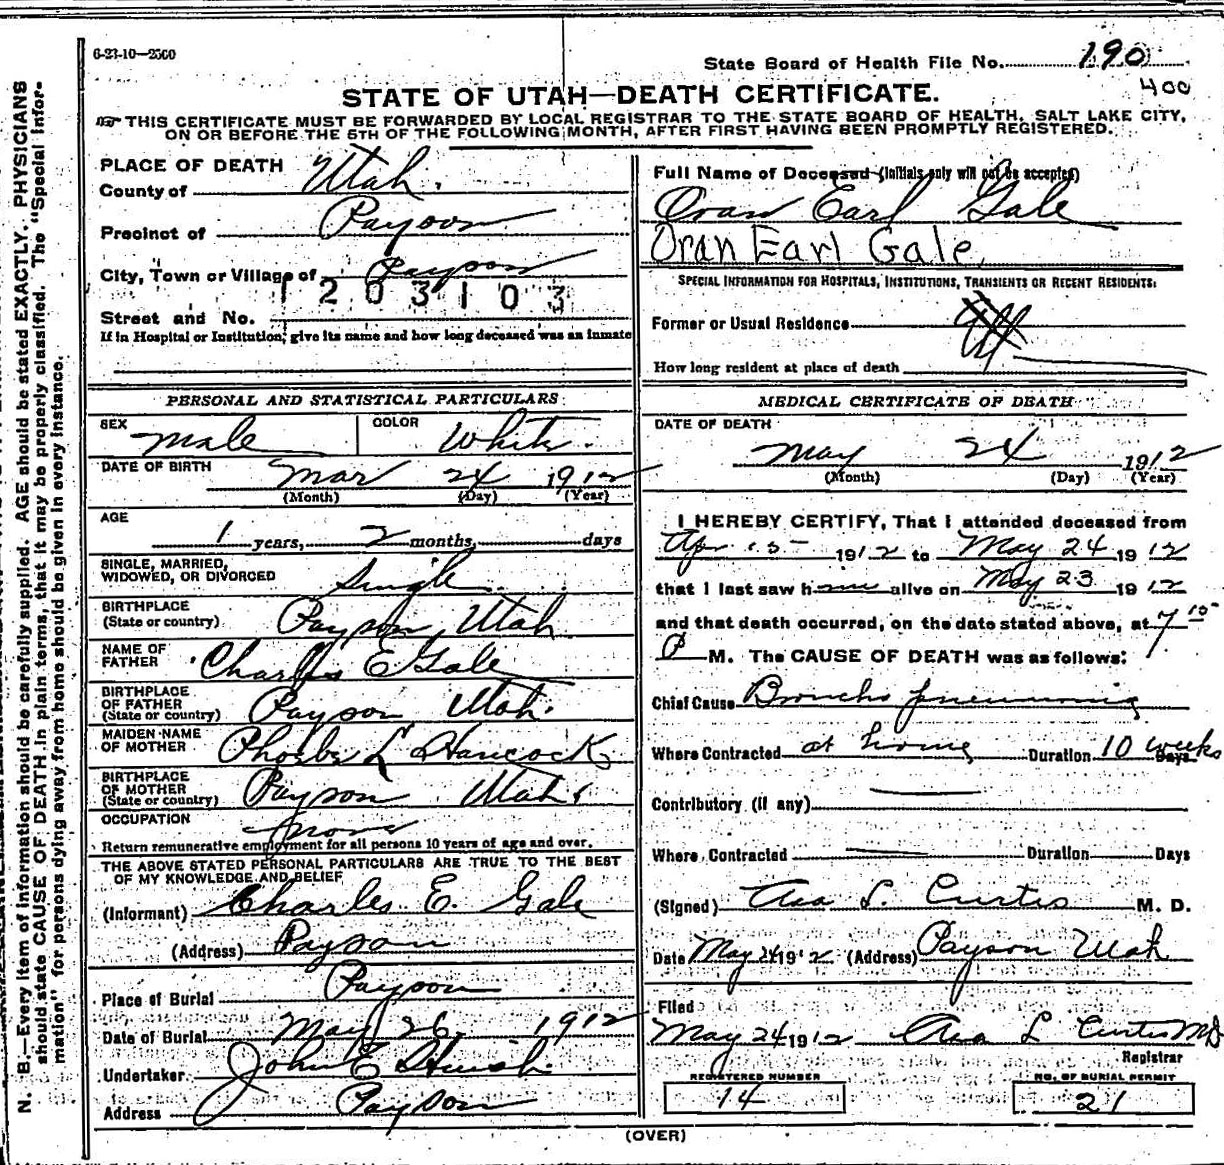 6-23-10—2500
State Board of Health File No. 190
400
STATE OF UTAH—DEATH CERTIFICATE.
THIS CERTIFICATE MUST BE FORWARDED BY LOCAL REGISTRAR TO THE STATE BOARD OF HEALTH, SALT LAKE CITY,
ON OR BEFORE THE 5TH OF THE FOLLOWING MONTH, AFTER FIRST HAVING BEEN PROMPTLY REGISTERED.
N. B.—Every item of Information should be carefully supplied. AGE should be stated EXACTLY. PHYSICIANS
should state CAUSE OF DEATH in plain terms, that it may be properly classified. The "Special Infor-
mation" for persons dying away from home should be given in every instance.
PLACE OF DEATH
County of Utah.
Precinct of Payson
City, Town or Village of Payson
1203103
Street and No.
If in Hospital or Institution, give its name and how long deceased was an inmate
Full Name of Deceased (Initials only will not be accepted)
Oran Earl Gale
Oran Earl Gale
SPECIAL INFORMATION FOR HOSPITALS, INSTITUTIONS, TRANSIENTS OR RECENT RESIDENTS:
Former or Usual Residence
How long resident at place of death
PERSONAL AND STATISTICAL PARTICULARS
SEX male COLOR White.
DATE OF BIRTH Mar 24 1912
(Month) (Day) (Year)
AGE
1 years, 2 months, days
SINGLE, MARRIED,
WIDOWED, OR DIVORCED Single
BIRTHPLACE
(State or country) Payson, Utah
NAME OF
FATHER Charles E Gale
BIRTHPLACE
OF FATHER
(State or country) Payson Utah.
MAIDEN NAME
OF MOTHER Phoebe L Hancock
BIRTHPLACE
OF MOTHER
(State or country) Payson Utah.
OCCUPATION none
Return remunerative employment for all persons 10 years of age and over.
THE ABOVE STATED PERSONAL PARTICULARS ARE TRUE TO THE BEST
OF MY KNOWLEDGE AND BELIEF
(Informant) Charles E. Gale
(Address) Payson
Place of Burial Payson
Date of Burial May 26 1912
Undertaker John E Huish.
Address Payson
MEDICAL CERTIFICATE OF DEATH
DATE OF DEATH
May 24 1912
(Month) (Day) (Year)
I HEREBY CERTIFY, That I attended deceased from
Apr 15 1912 to May 24 1912
that I last saw him alive on May 23 1912
and that death occurred, on the date stated above, at 7 15
P M. The CAUSE OF DEATH was as follows:
Chief Cause Broncho pneumonia
Where Contracted at home Duration 10 weeks Days
Contributory (if any)
Where Contracted Duration Days
(Signed) Asa L. Curtis M. D.
Date May 24 1912 (Address) Payson Utah
Filed
May 24 1912 Asa L Curtis MD
Registrar
REGISTERED NUMBER
14
NO. OF BURIAL PERMIT
21
(OVER)